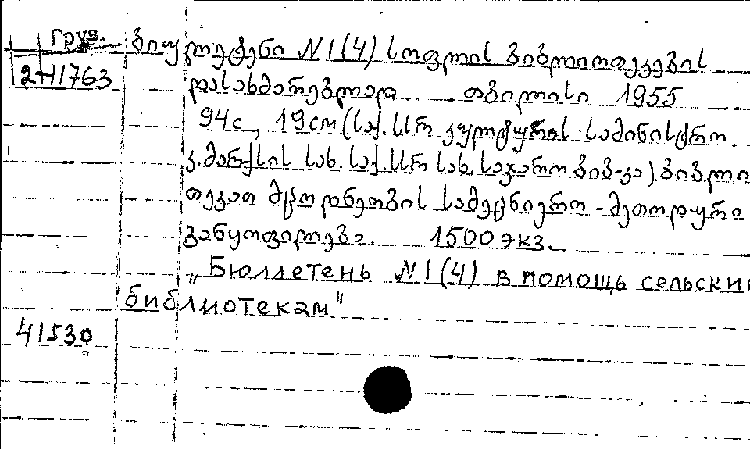 Груз. ბიულეტენი №1(4) სოფლის ბიბლიოთეკების
2-41763 დასახმარებლად თბილისი 1955
94с, 19см (საქ. სსრ კულტურის სამინისტრო.
კ. მარქსის სახ. საქ. სსრ სახ. საჯარო ბიბ-კა). ბიბლი
თეკათ მცოდნეობის სამეცნიერო - მეთოდური
განყოფილება. 1500 экз.
„Бюллетень №1(4) в помощь сельским
библиотекам"
41530